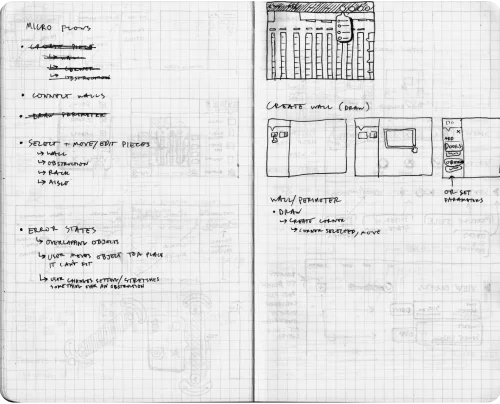 MICRO FLOWS
• CREATE PIECE
↳ WALL
↳ CORNER
↳ OBSTRUCTION
• CONNECT WALLS
• DRAW PERIMETER
• SELECT + MOVE/EDIT PIECES
↳ WALL
↳ OBSTRUCTION
↳ RACK
↳ AISLE
• ERROR STATES
↳ OVERLAPPING OBJECTS
↳ USER MOVES OBJECT TO A PLACE
IT CAN'T FIT
↳ USER CHANGES SETTING/STRETCHES
SOMETHING OVER AN OBSTRUCTION
CREATE WALL (DRAW)
ADD
DOORS
OR SET
PARAMETERS
WALL/PERIMETER
• DRAW
↳ CREATE CORNER
↳ CORNER SELECTED, MOVE